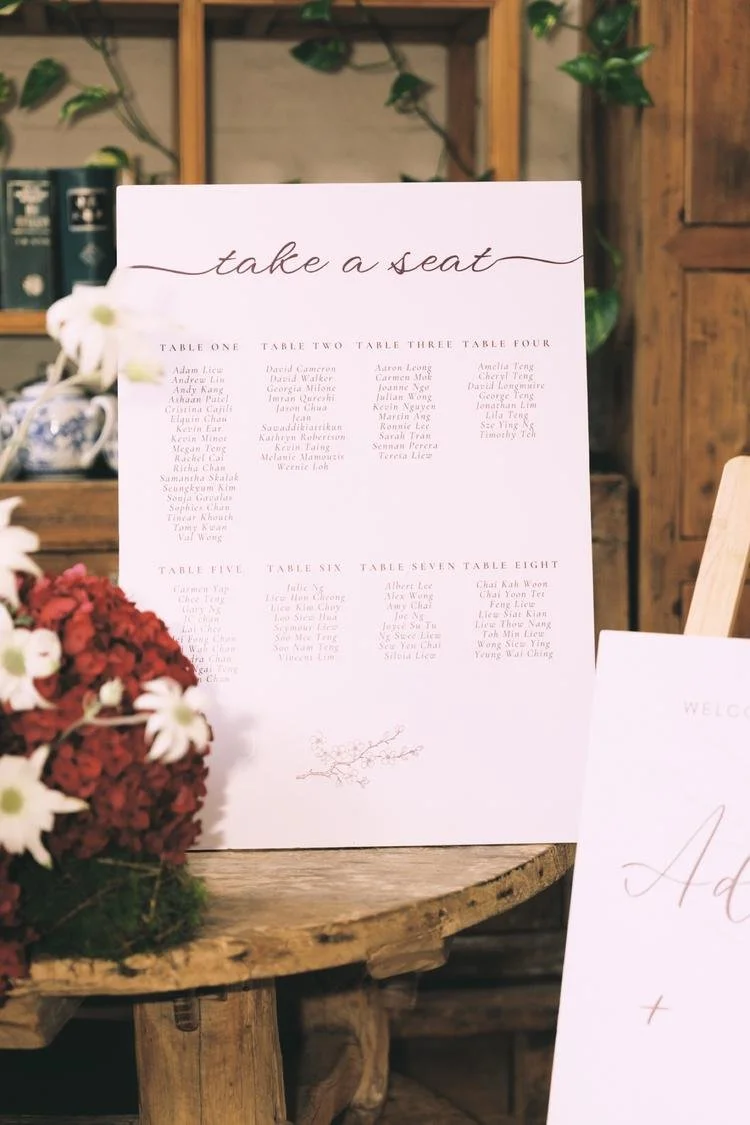 take a seat
TABLE ONE
Adam Liew
Andrew Liu
Andy Kang
Ashaan Patel
Cristina Cajili
Elquin Chau
Kevin Ear
Kevin Minot
Megan Teng
Rachel Cai
Ritha Chan
Samantha Skalak
Seungkyum Kim
Sonja Gavalas
Sophies Chau
Tinear Khouth
Tomy Kwan
Val Wong
TABLE TWO
David Cameron
David Walker
Georgia Milone
Imran Qureshi
Jason Chua
Jean
Sawaddikiatikun
Kathryn Robertson
Kevin Taing
Melanie Mamouzis
Wernie Loh
TABLE THREE
Aaron Leong
Carmen Mok
Joanne Ngo
Julian Wong
Kevin Nguyen
Martin Ang
Ronnie Lee
Sarah Tran
Sennan Perera
Teresa Liew
TABLE FOUR
Amelia Teng
Cheryl Teng
David Longmuire
George Teng
Jonathan Lim
Lila Teng
Sze Ying Ng
Timothy Teh
TABLE FIVE
Carmen Yap
Chee Teng
Gary Ng
JC chan
Lai Chee
Fong Chan
Wah Chan
Teng
Chan
TABLE SIX
Julie Ng
Liew Hon Cheong
Liew Kim Choy
Loo Siew Hua
Seymour Liew
Soo Mee Teng
Soo Nam Teng
Vincent Lim
TABLE SEVEN
Albert Lee
Alex Wong
Amy Chai
Joe Ng
Joyce Su Tu
Ng Swee Liew
Sew Yen Chai
Silvia Liew
TABLE EIGHT
Chai Kah Woon
Chai Yoon Tet
Feng Liew
Liew Siat Kian
Liew Thow Nang
Toh Min Liew
Wong Siew Ying
Yeung Wai Ching
WELCO
Ad
+